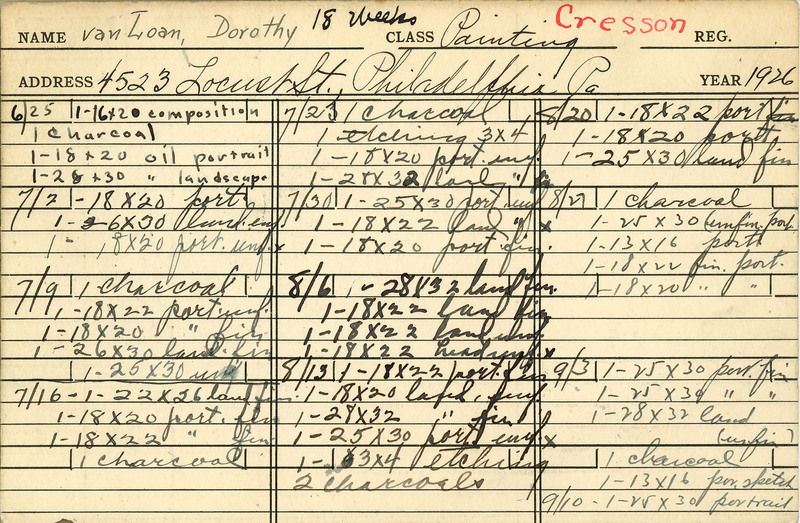 NAME van Loan, Dorothy 18 weeks CLASS Painting Cresson REG.
ADDRESS 4523 Locust St., Philadelphia Pa YEAR 1926
6/25 1-16x20 composition
1 Charcoal
1-18x20 oil portrait
1-28x30 " landscape
7/2 1-18x20 port.
1-26x30 land. unf.
1-18x20 port. unf. x
7/9 1 charcoal
1-18x22 port. unf.
1-18x20 " fin
1-26x30 land. fin
1-25x30 unf
7/16-1-22x26 land fin.
1-18x20 port. fin
1-18x22 " fin
1 charcoal
7/23 1 charcoal
1 etching 3x4
1-18x20 port. unf.
1-28x32 land "
7/30 1-25x30 port. unf
1-18x22 land " x
1-18x20 port. fin.
8/6 1-28x32 land fin.
1-18x22 land fin
1-18x22 land unf.
1-18x22 head unf x
8/13 1-18x22 port. fin
1-18x20 land. unf
1-28x32 " fin
1-25x30 port. unf x
1-3x4 etching
2 charcoals
8/20 1-18x22 port fin
1-18x20 port
1-25x30 land fin
8/27 1 charcoal
1-25x30 (unfin. port.
1-13x16 port
1-18x22 fin. port.
1-18x20 " "
9/3 1-25x30 port. fin
1-25x30 " "
1-28x32 land
(unfin)
1 charcoal
1-13x16 por. sketch
9/10-1-25x30 portrait